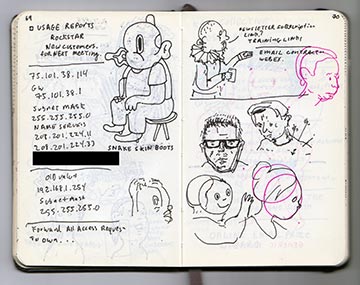 69
USAGE REPORTS
ROCKSTAR
NEW CUSTOMERS.
FOR NEXT MEETING
75.101.38.114
GW
75.101.38.1
SUBNET MASK
255.255.255.0
NAME SERVERS
208.201.224.11
208.201.224.33
SNAKE SKIN BOOTS
OLD VALUES
192.168.1.254
SUBNET MASK
255.255.255.0
FORWARD ALL ACCESS REQUEST
TO OWN...
70
NEWSLETTER SUBSCRIPTION
LINDI
TRAINING LINDI
EMAIL CONTRACTOR
WEBEX.